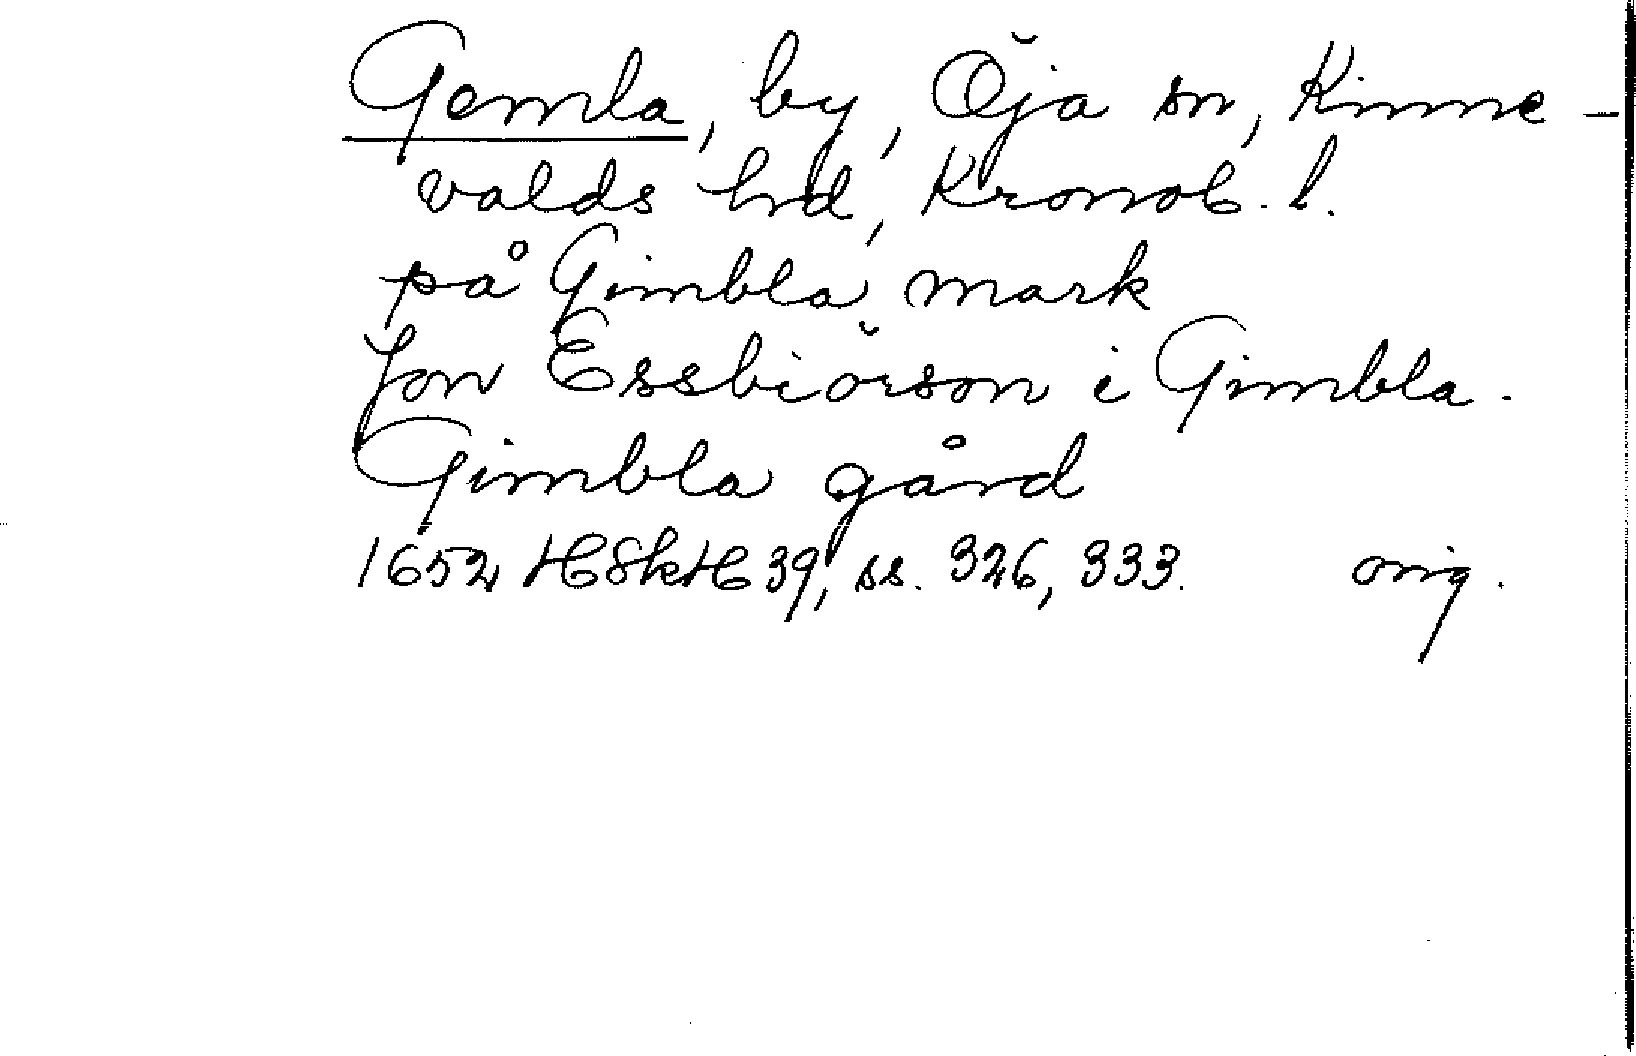 Gemla, by, Öja sn, Kinne-
valds hrd, Kronob. l.
på Gimbla mark
Jon Essbiörson i Gimbla.
Gimbla gård
1652 HSkH 39, ss. 326, 333. orig.